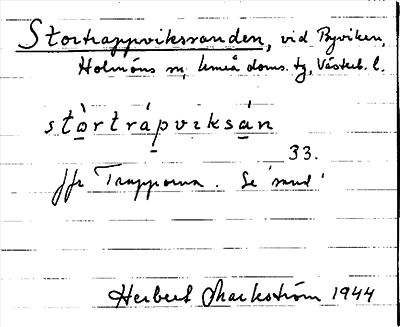 Stortrappvikssanden, vid Byviken,
Holmöns sn, Umeå doms. tg, Västerb. l.
stòrtrápviksán
33.
Jfr Trapporna. Se 'sand'
Herbert Markström 1944